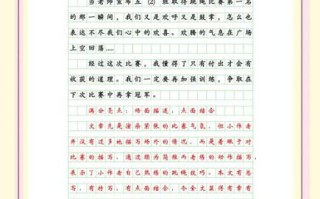 当老师宣布五（2）班取得跳绳比赛第一名
的那一瞬间，我们又是欢呼又是鼓掌，怎么也
表达不尽我们心中的欢喜。欢腾的气息在广场
上空回荡……
经过这次比赛，我懂得了只有付出才会有
收获的道理。我们一定要再加强训练，争取在
下次比赛中再拿冠军。
满分亮点：场面描波，点面结合
文章充是漆荡紧张的比赛气氛，但小作者
并没有过多地描写场外的情况，而是着眼于对
比赛的描写，通过颇为简练作者的动作描写表
展示了小作者自己熟练的跳绳技能。本文有总
写，有特写，有点面结合，令全文显得有章有